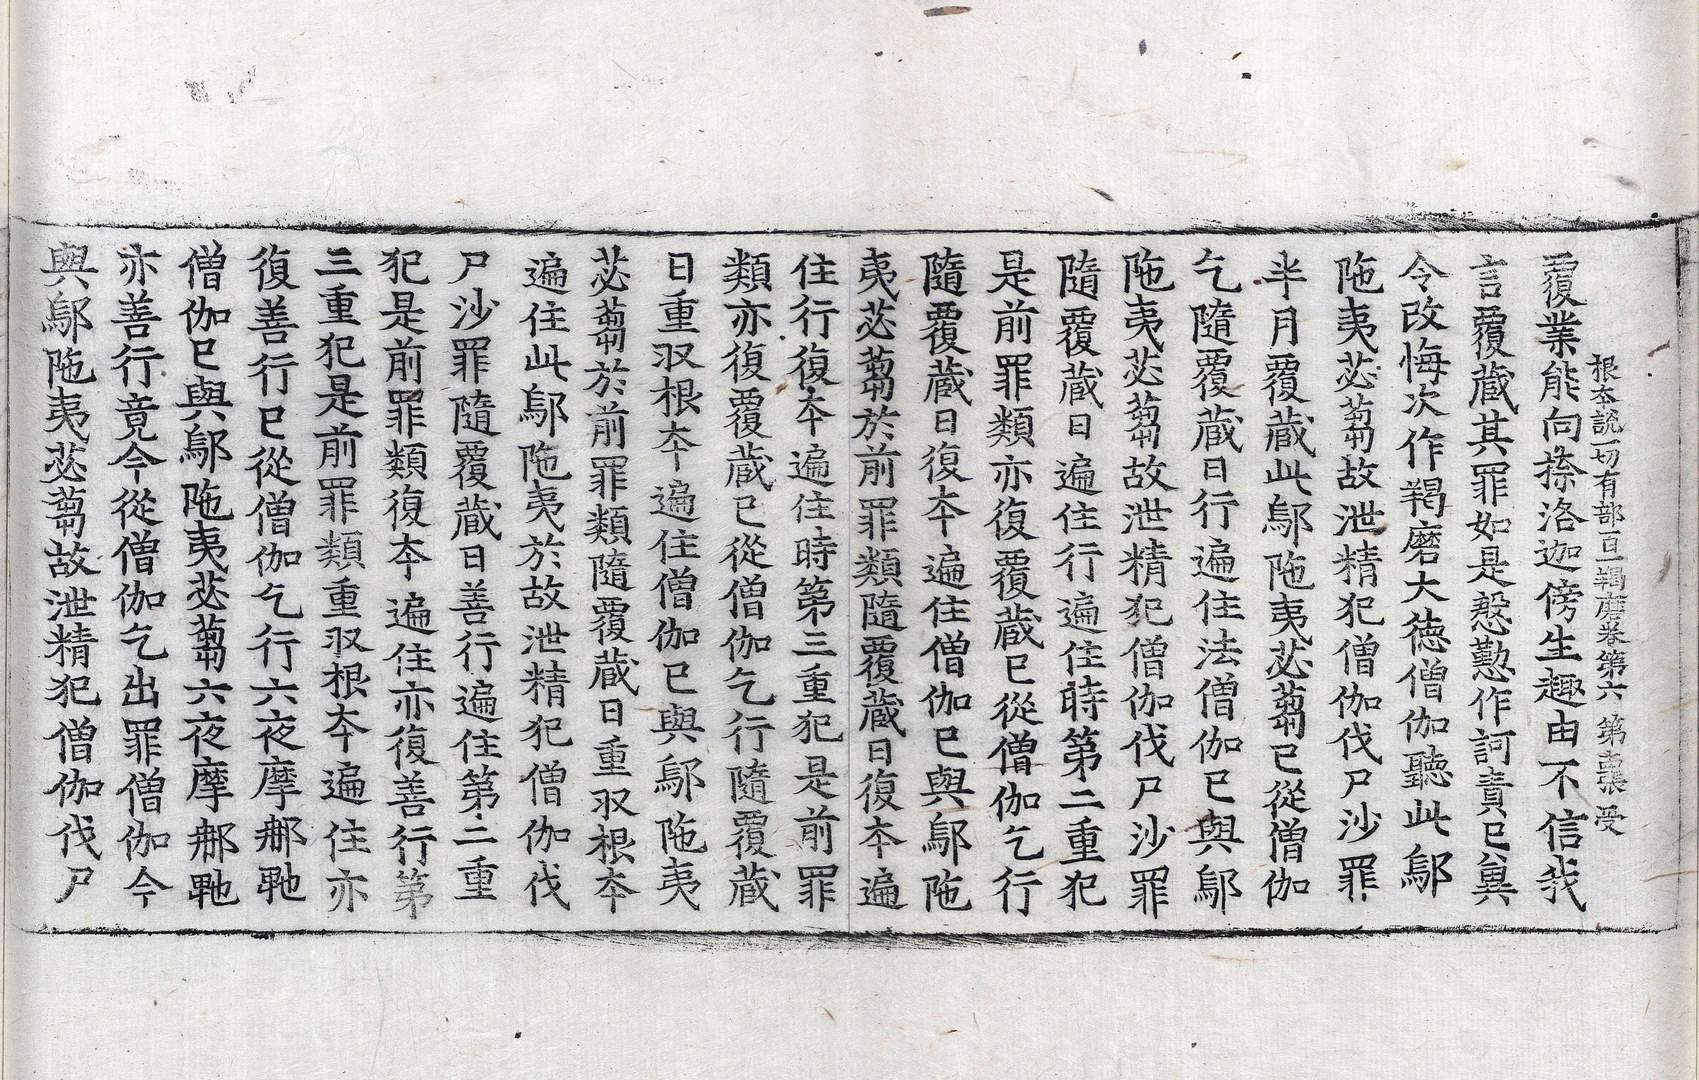 根夲說一切有部百一羯磨卷第六 第張 受
覆業能向捺洛迦傍生趣由不信我
言覆藏其罪如是慇懃作訶責已兾
令改悔次作羯磨大德僧伽聽此鄔
陁夷苾蒭故泄精犯僧伽伐尸沙罪
半月覆藏此鄔陁夷苾蒭已從僧伽
乞隨覆藏日行遍住法僧伽已與鄔
陁夷苾蒭故泄精犯僧伽伐尸沙罪
隨覆藏日遍住行遍住時第二重犯
是前罪類亦復覆藏已從僧伽乞行
隨覆藏日復夲遍住僧伽已與鄔陁
夷苾蒭於前罪類隨覆藏日復夲遍
住行復夲遍住時第三重犯是前罪
類亦復覆藏已從僧伽乞行隨覆藏
日重収根夲遍住僧伽已與鄔陁夷
苾蒭於前罪類隨覆藏日重収根夲
遍住此鄔陁夷於故泄精犯僧伽伐
尸沙罪隨覆藏日善行遍住第二重
犯是前罪類復夲遍住亦復善行第
三重犯是前罪類重収根夲遍住亦
復善行已從僧伽乞行六夜摩𨚗
僧伽已與鄔陁夷苾蒭六夜摩𨚗
亦善行竟今從僧伽乞出罪僧伽今
與鄔陁夷苾蒭故泄精犯僧伽伐尸